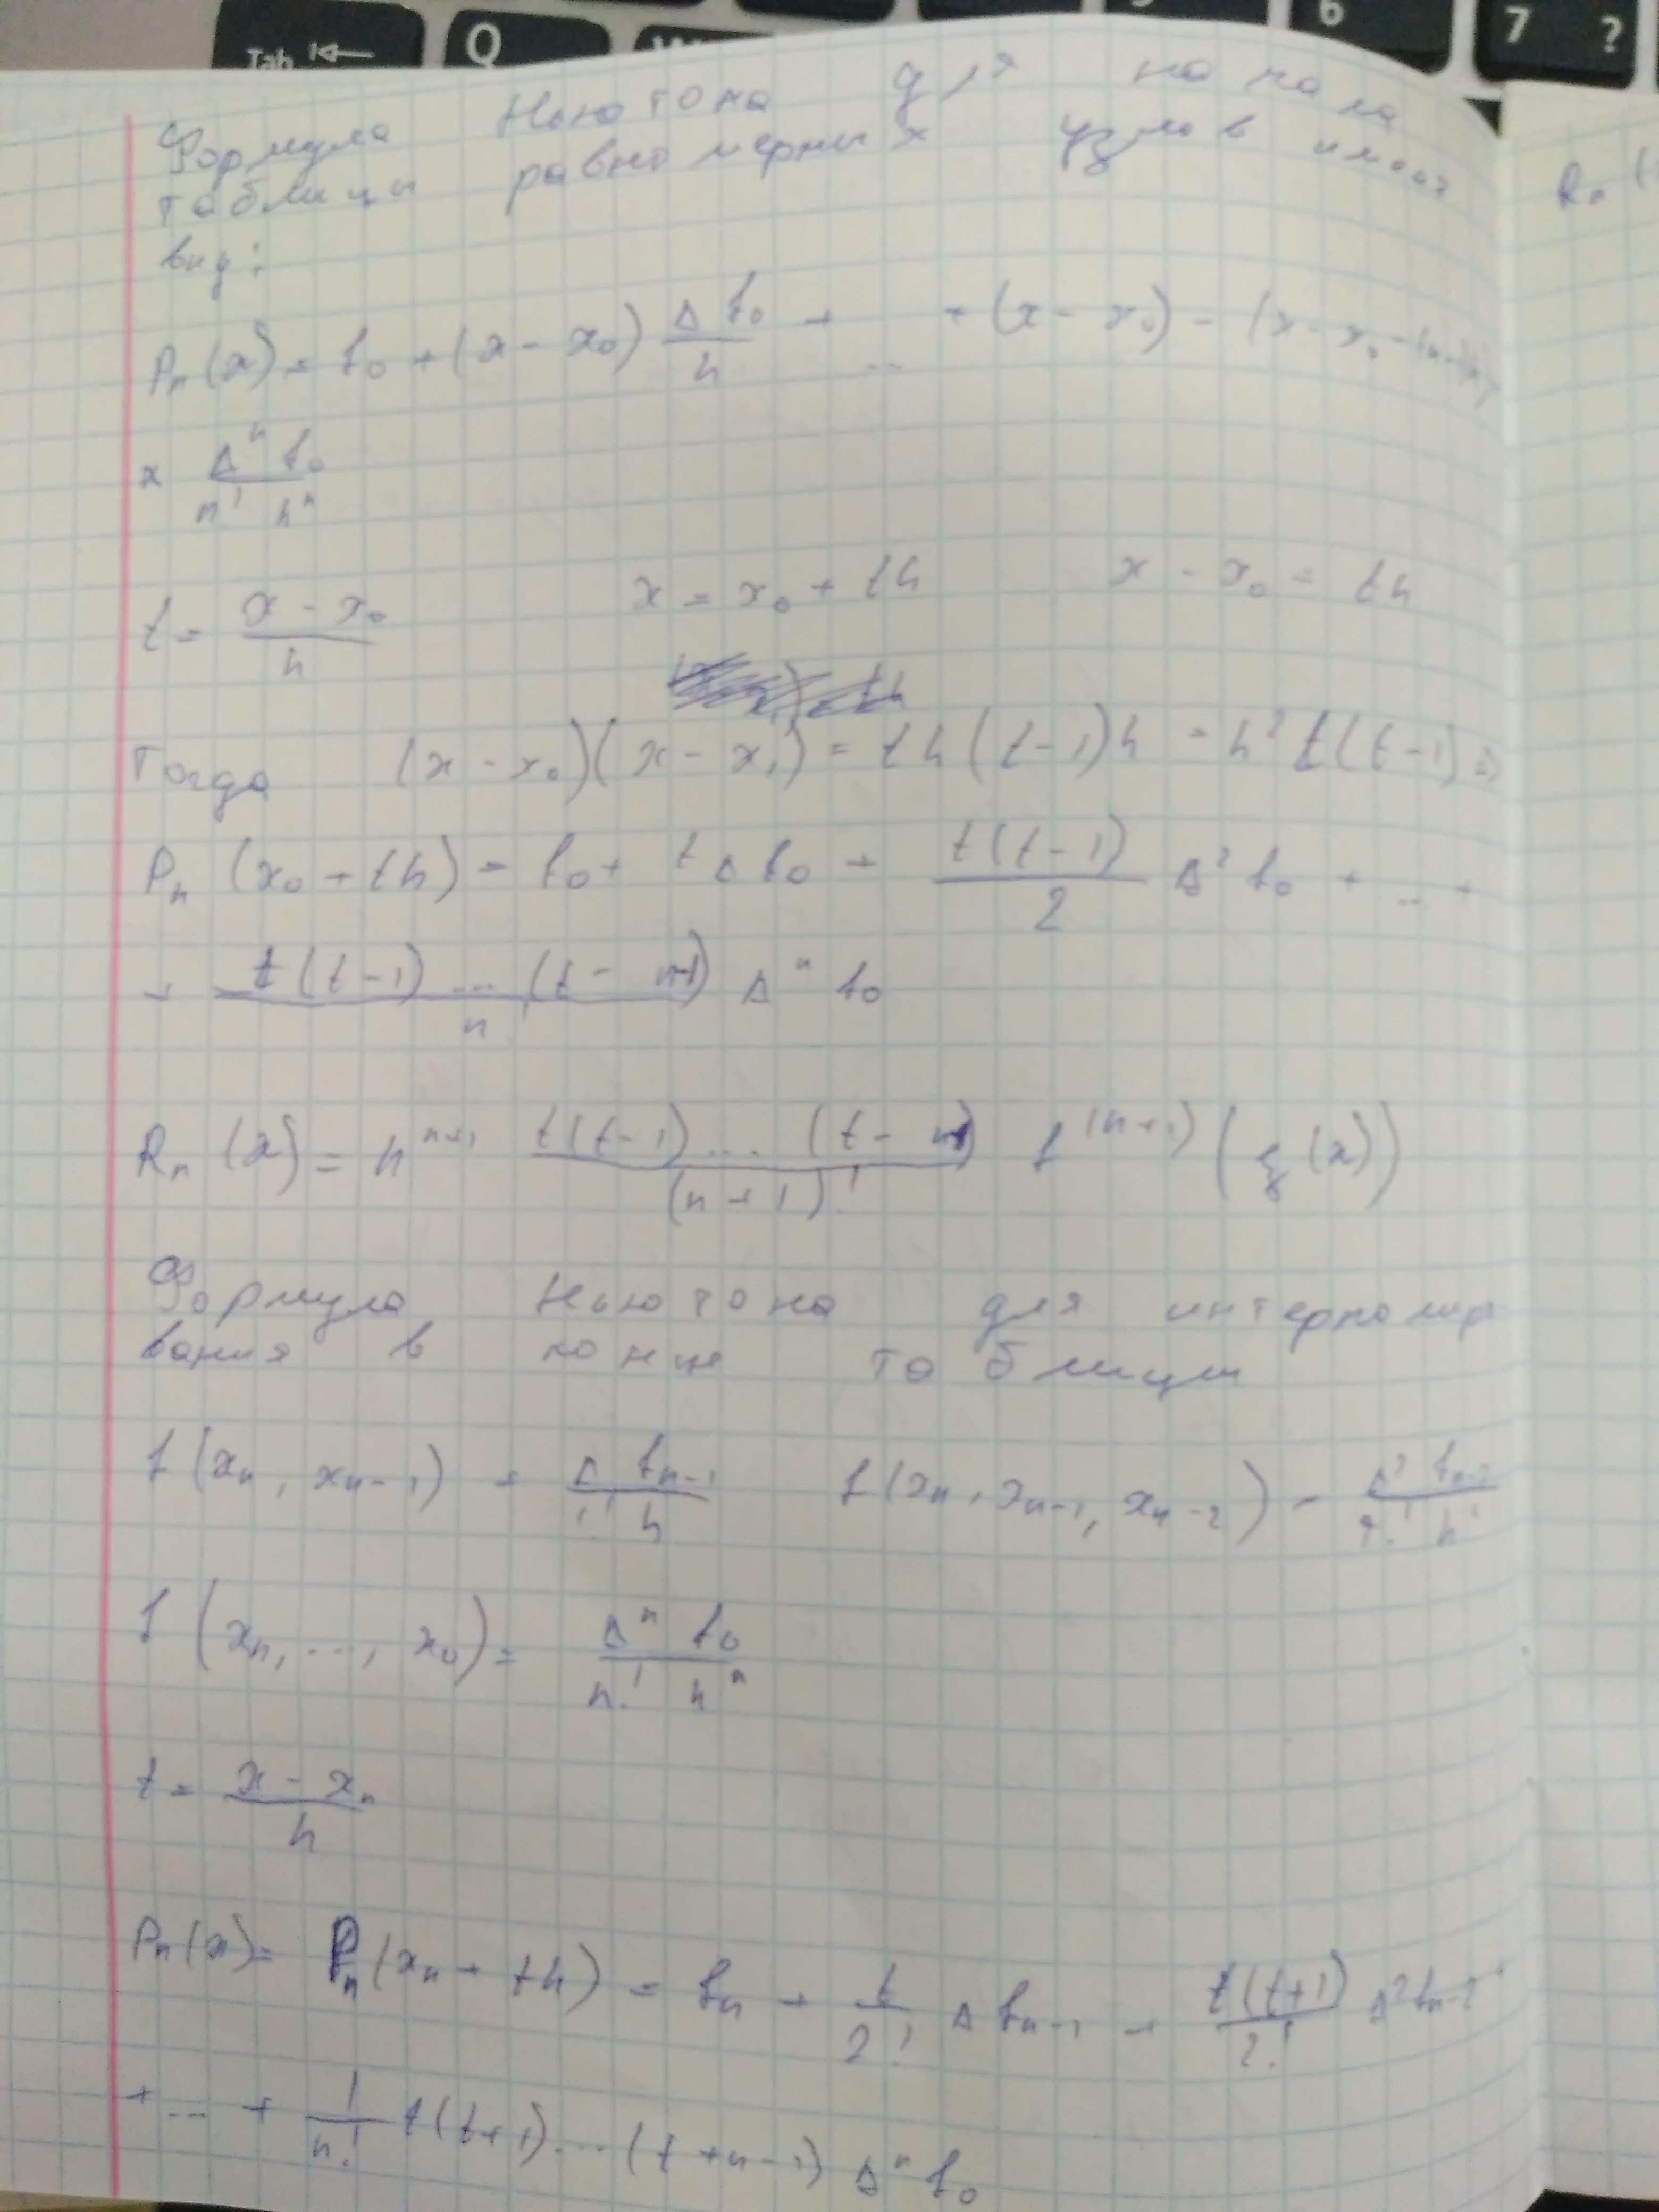 Tab Q W 6 7 ?
Формула Ньютона для начала
таблицы равномерных узлов имеет
вид:
Rₙ (
Pₙ(x) = f₀ + (x - x₀) Δf₀/h + ... + (x - x₀) - (x - x₀ -
x Δⁿ f₀ / n! hⁿ
t = (x - x₀)/h x = x₀ + th x - x₀ = th
Тогда (x - x₀)(x - x₁) = th(t-1)h = h² t(t-1) ⇒
Pₙ (x₀ + th) = f₀ + t Δf₀ + t(t-1)/2 Δ² f₀ + ... +
+ t(t-1) ... (t - n+1)/n! Δⁿ f₀
Rₙ (x) = hⁿ⁺¹ t(t-1)... (t - n)/(n+1)! f⁽ⁿ⁺¹⁾ (ξ(x))
Формула Ньютона для интерполиро
вания в конце таблицы
f(xₙ, xₙ₋₁) = Δ fₙ₋₁ / 1! h f(xₙ, xₙ₋₁, xₙ₋₂) = Δ² fₙ₋₂ / 2! h²
f(xₙ, ..., x₀) = Δⁿ f₀ / n! hⁿ
t = (x - xₙ)/h
Pₙ(x) = Pₙ(xₙ + th) = fₙ + t/2! Δfₙ₋₁ + t(t+1)/2! Δ²fₙ₋₂ +
+ ... + 1/n! t(t+1)...(t+n-1) Δⁿ f₀